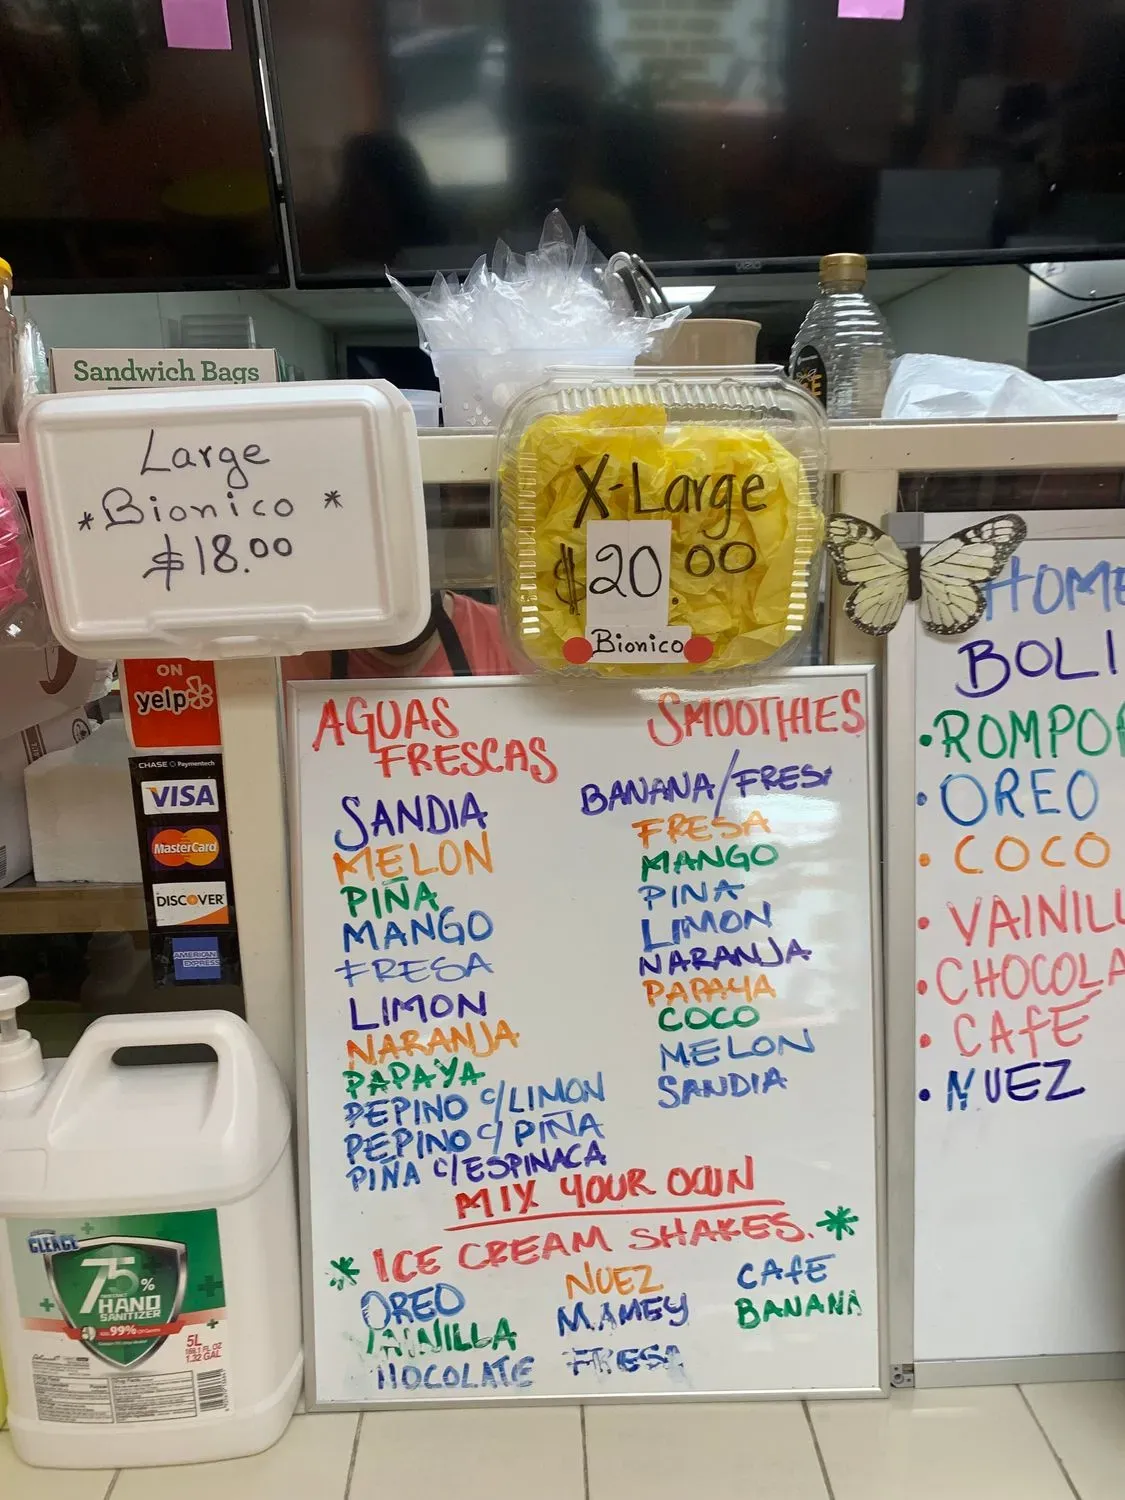 Sandwich Bags
Large
*Bionico*
$18.00
X-Large
$20.00
Bionico
VIZIO
ON
yelp
CHASE Paymentech
VISA
MasterCard
DISCOVER
AMERICAN EXPRESS
AGUAS
FRESCAS
SANDIA
MELON
PIÑA
MANGO
FRESA
LIMON
NARANJA
PAPAYA
PEPINO C/LIMON
PEPINO C/ PIÑA
PIÑA C/ESPINACA
SMOOTHIES
BANANA/FRESA
FRESA
MANGO
PINA
LIMON
NARANJA
PAPAYA
COCO
MELON
SANDIA
MIX YOUR OWN
* ICE CREAM SHAKES. *
OREO
VAINILLA
HOCOLATE
NUEZ
MAMEY
FRESA
CAFE
BANANA
HOME
BOLI
•ROMPO
•OREO
•COCO
•VAINILL
•CHOCOLA
•CAfE
•NUEZ
CLEACE
75%
HAND
SANITIZER
99%
5L
1.32 GAL